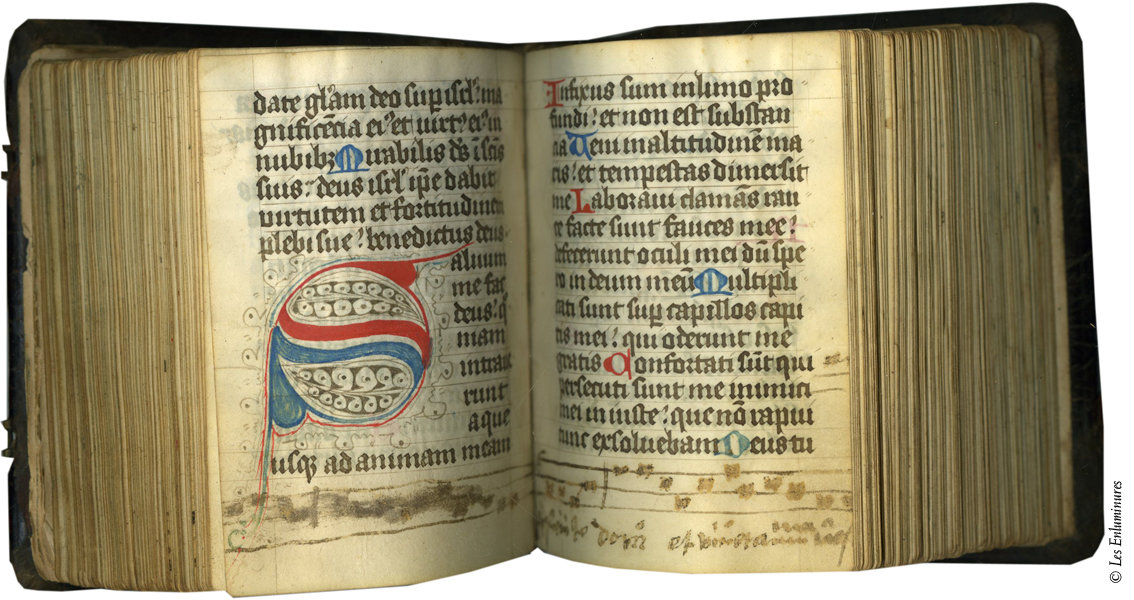 date gl'am deo sup isrl' : ma
gnificēcia ei' et uirt' ei' in
nubibz Mirabilis ds̄ ī scīs
suis : deus isrl' ip̄e dabit
virtutem et fortitudinem
plebi sue : benedictus deus .
Saluum
me fac
deus : q̄
niam
intraue
runt
aque
usqz ad animam meam
Infixus sum in limo pro
fundi : et non est substan
cia Veni in altitudinē ma
ris : et tempestas dimersit
me Laboraui clamās rau
ce facte sunt fauces mee :
defecerunt oculi mei dū spe
ro in deum meū Multipli
cati sunt sup capillos capi
tis mei : qui oderunt me
gratis Confortati sūt qui
persecuti sunt me inimici
mei in iuste : que nō rapui
tunc exsoluebam Deus tu
© Les Enluminures